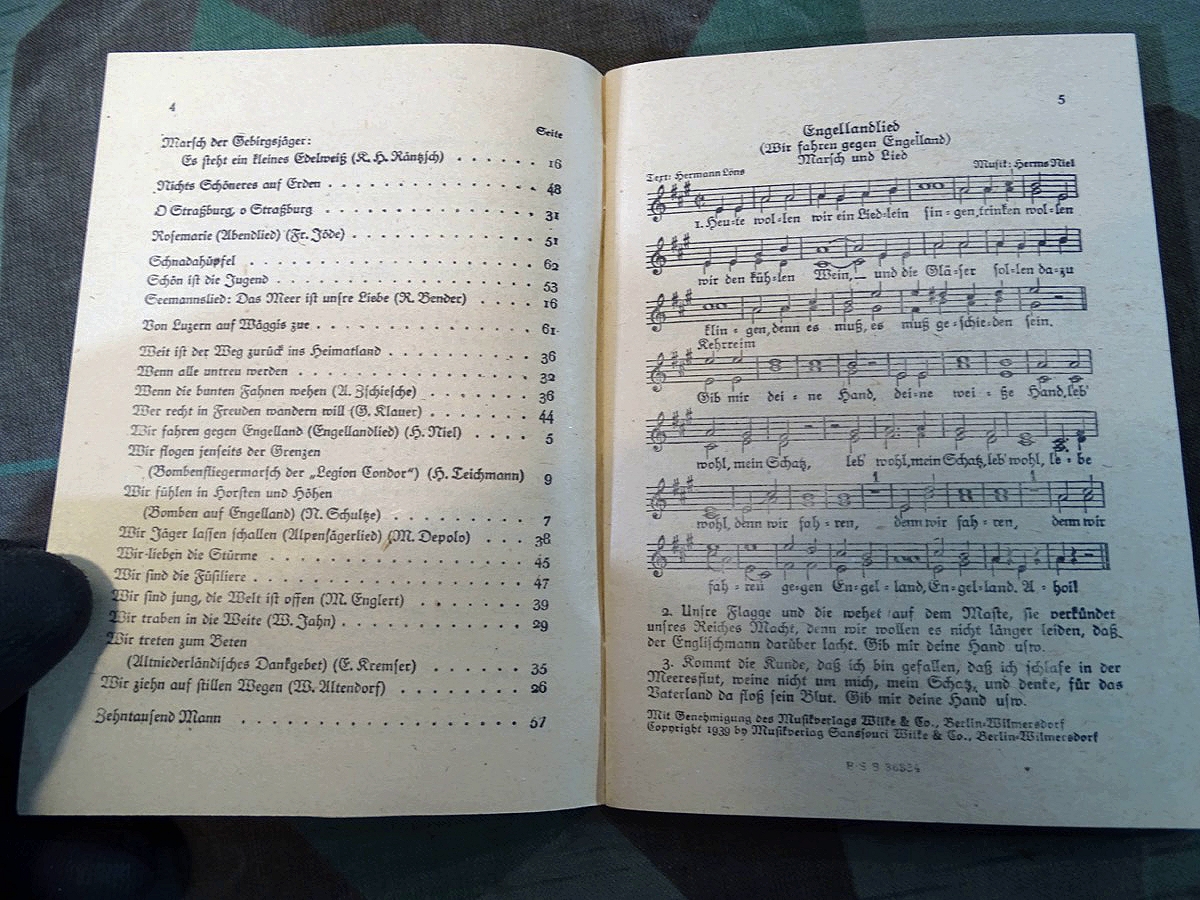 4
Seite
Marsch der Gebirgsjäger:
Es steht ein kleines Edelweiß (K. H. Räntzsch) . . . . . . 16
Nichts Schöneres auf Erden . . . . . . . . . . . . . . . . 48
O Straßburg, o Straßburg . . . . . . . . . . . . . . . . 31
Rosemarie (Abendlied) (Fr. Jöde) . . . . . . . . . . . . . 51
Schnadahüpfel . . . . . . . . . . . . . . . . . . . . . 62
Schön ist die Jugend . . . . . . . . . . . . . . . . . . 53
Seemannslied: Das Meer ist unsre Liebe (R. Bender) . . . . 16
Von Luzern auf Wäggis zue . . . . . . . . . . . . . . . 61
Weit ist der Weg zurück ins Heimatland . . . . . . . . . . 36
Wenn alle untreu werden . . . . . . . . . . . . . . . . 32
Wenn die bunten Fahnen wehen (A. Zschiesche) . . . . . . 36
Wer recht in Freuden wandern will (G. Klauer) . . . . . . 44
Wir fahren gegen Engelland (Engellandlied) (H. Niel) . . . . 5
Wir flogen jenseits der Grenzen
(Bombenfliegermarsch der „Legion Condor“) (H. Teichmann) 9
Wir fühlen in Horsten und Höhen
(Bomben auf Engelland) (N. Schultze) . . . . . . . . . . 7
Wir Jäger lassen schallen (Alpenjägerlied) (M. Depolo) . . . . 38
Wir lieben die Stürme . . . . . . . . . . . . . . . . . 45
Wir sind die Füsiliere . . . . . . . . . . . . . . . . . 47
Wir sind jung, die Welt ist offen (M. Englert) . . . . . . . 39
Wir traben in die Weite (W. Jahn) . . . . . . . . . . . . 29
Wir treten zum Beten
(Altniederländisches Dankgebet) (E. Kremser) . . . . . . 35
Wir ziehn auf stillen Wegen (W. Altendorf) . . . . . . . . 26
Zehntausend Mann . . . . . . . . . . . . . . . . . . 57
5
Engellandlied
(Wir fahren gegen Engelland)
Marsch und Lied
Text: Hermann Löns Musik: Herms Niel
1. Heu-te wol-len wir ein Lied-lein sin-gen, trinken wol-len
wir den küh-len Wein, und die Glä-ser sol-len da-zu
klin-gen, denn es muß, es muß ge-schie-den sein.
Kehrreim
Gib mir dei-ne Hand, dei-ne wei-ße Hand, leb'
wohl, mein Schatz, leb' wohl, mein Schatz, leb' wohl, le-be
wohl, denn wir fah-ren, denn wir fah-ren, denn wir
fah-ren ge-gen En-gel-land, En-gel-land. A-hoi!
2. Unsre Flagge und die wehet auf dem Maste, sie verkündet
unsres Reiches Macht, denn wir wollen es nicht länger leiden, daß
der Englischmann darüber lacht. Gib mir deine Hand usw.
3. Kommt die Kunde, daß ich bin gefallen, daß ich schlafe in der
Meeresflut, weine nicht um mich, mein Schatz, und denke, für das
Vaterland da floß sein Blut. Gib mir deine Hand usw.
Mit Genehmigung des Musikverlags Wilke & Co., Berlin-Wilmersdorf
Copyright 1939 by Musikverlag Sanssouci Wilke & Co., Berlin-Wilmersdorf